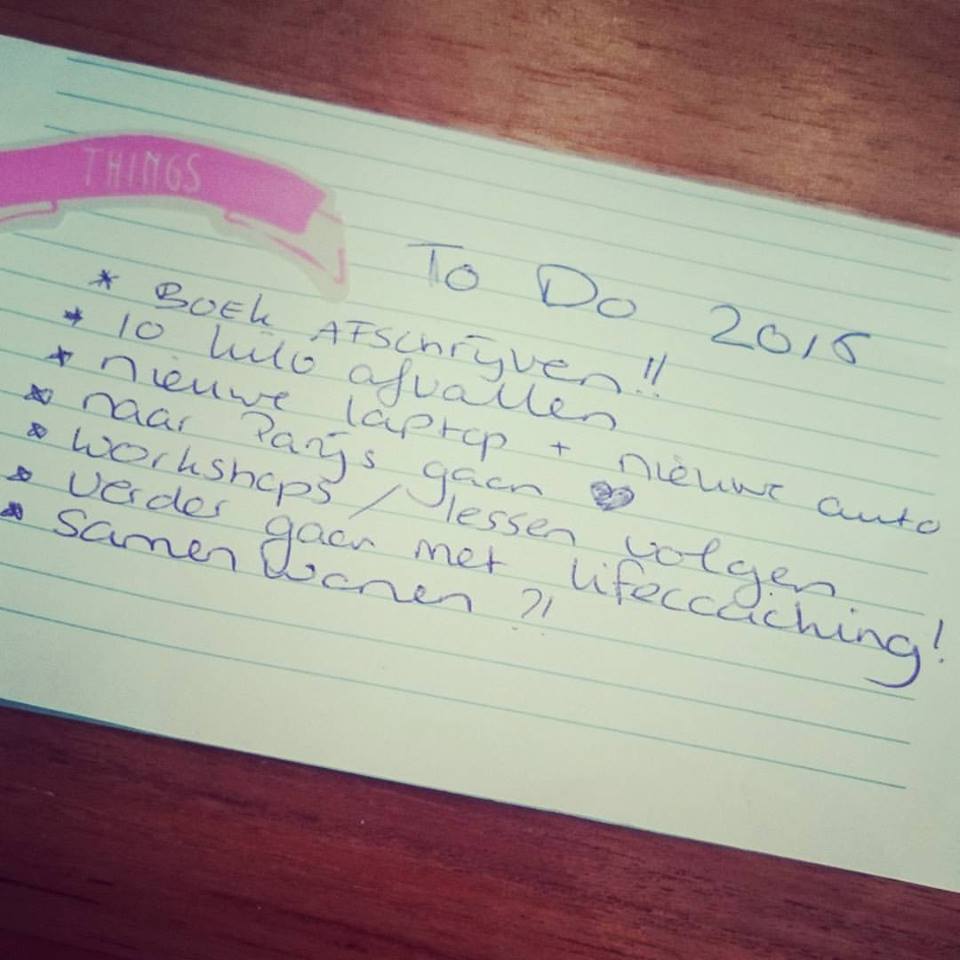 THINGS
To Do 2016
* BOEK AFSchrijven!!
* 10 kilo afvallen
* nieuwe laptop + nieuwe auto
* naar Parijs gaan ♥
* workshops / lessen volgen
* verder gaan met lifecoaching!
* samen wonen ?!